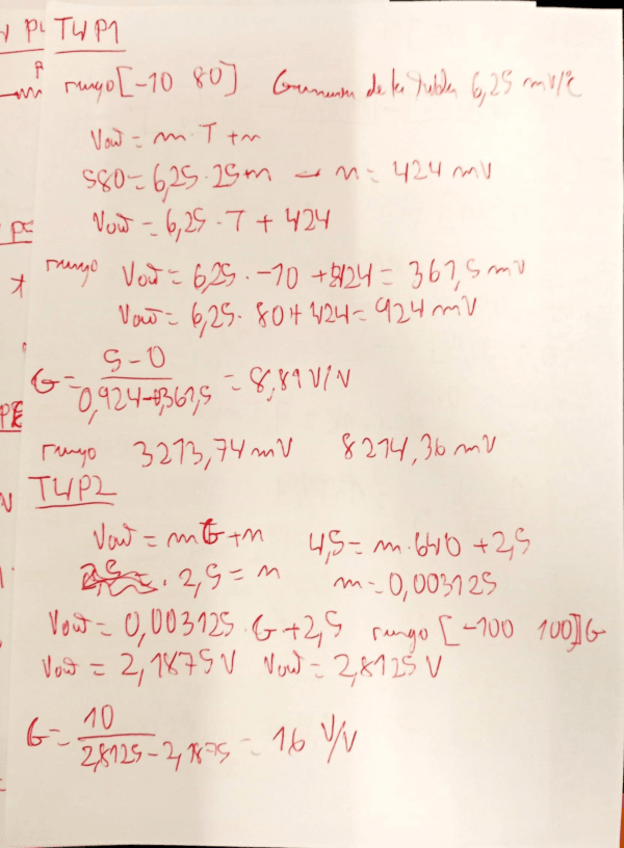 TWP1
rango [-10 80] de la tabla 6,25 mV/ºC
Vout = m · T + n
580 = 6,25 · 25 + n → n = 424 mV
Vout = 6,25 · T + 424
rango Vout = 6,25 · -10 + 424 = 361,5 mV
Vout = 6,25 · 80 + 424 = 924 mV
G = 5 - 0 / 0,924 - 0,361,5 = 8,89 V/V
rango 3213,74 mV 8214,36 mV
TWP2
Vout = m G + n 4,5 = m · 640 + 2,5
2,5 = n m = 0,003125
Vout = 0,003125 · G + 2,5 rango [-100 100] G
Vout = 2,1875 V Vout = 2,8125 V
G = 10 / 2,8125 - 2,1875 = 16 V/V